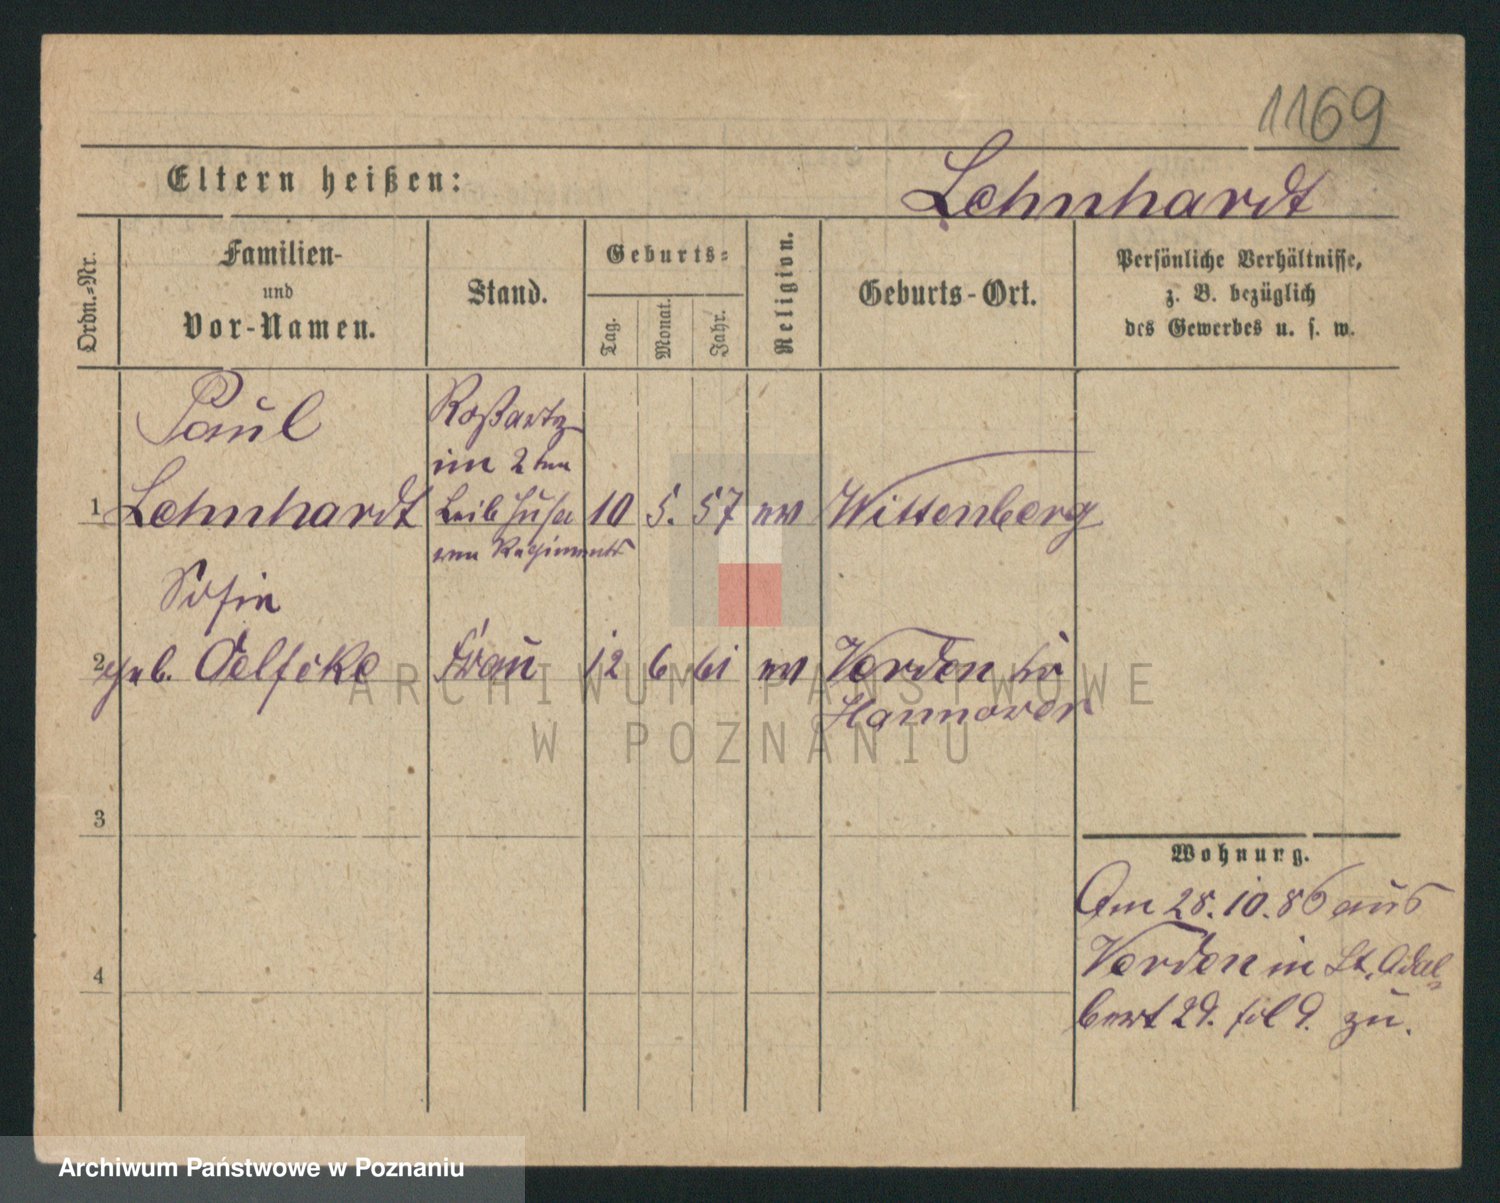 1169
Eltern heißen:
Lehnhardt
Ordn.-Nr.
Familien-
und
Vor-Namen.
Stand.
Geburts-
Tag.
Monat.
Jahr.
Religion.
Geburts-Ort.
Persönliche Verhältnisse,
z. B. bezüglich
des Gewerbes u. s. w.
Paul
Roßartz
im 2ten
1 Lehnhardt Leib Husa 10 5. 57 ev Wittenberg
ren Regiments
Sofie
2 geb. Oelfcke Frau 12 6 61 ev Verden in
Hannover
ARCHIWUM PAŃSTWOWE
W POZNANIU
3
4
Wohnung.
Am 28.10.86 aus
Verden in St. Adal-
bert 29. zu.
Archiwum Państwowe w Poznaniu